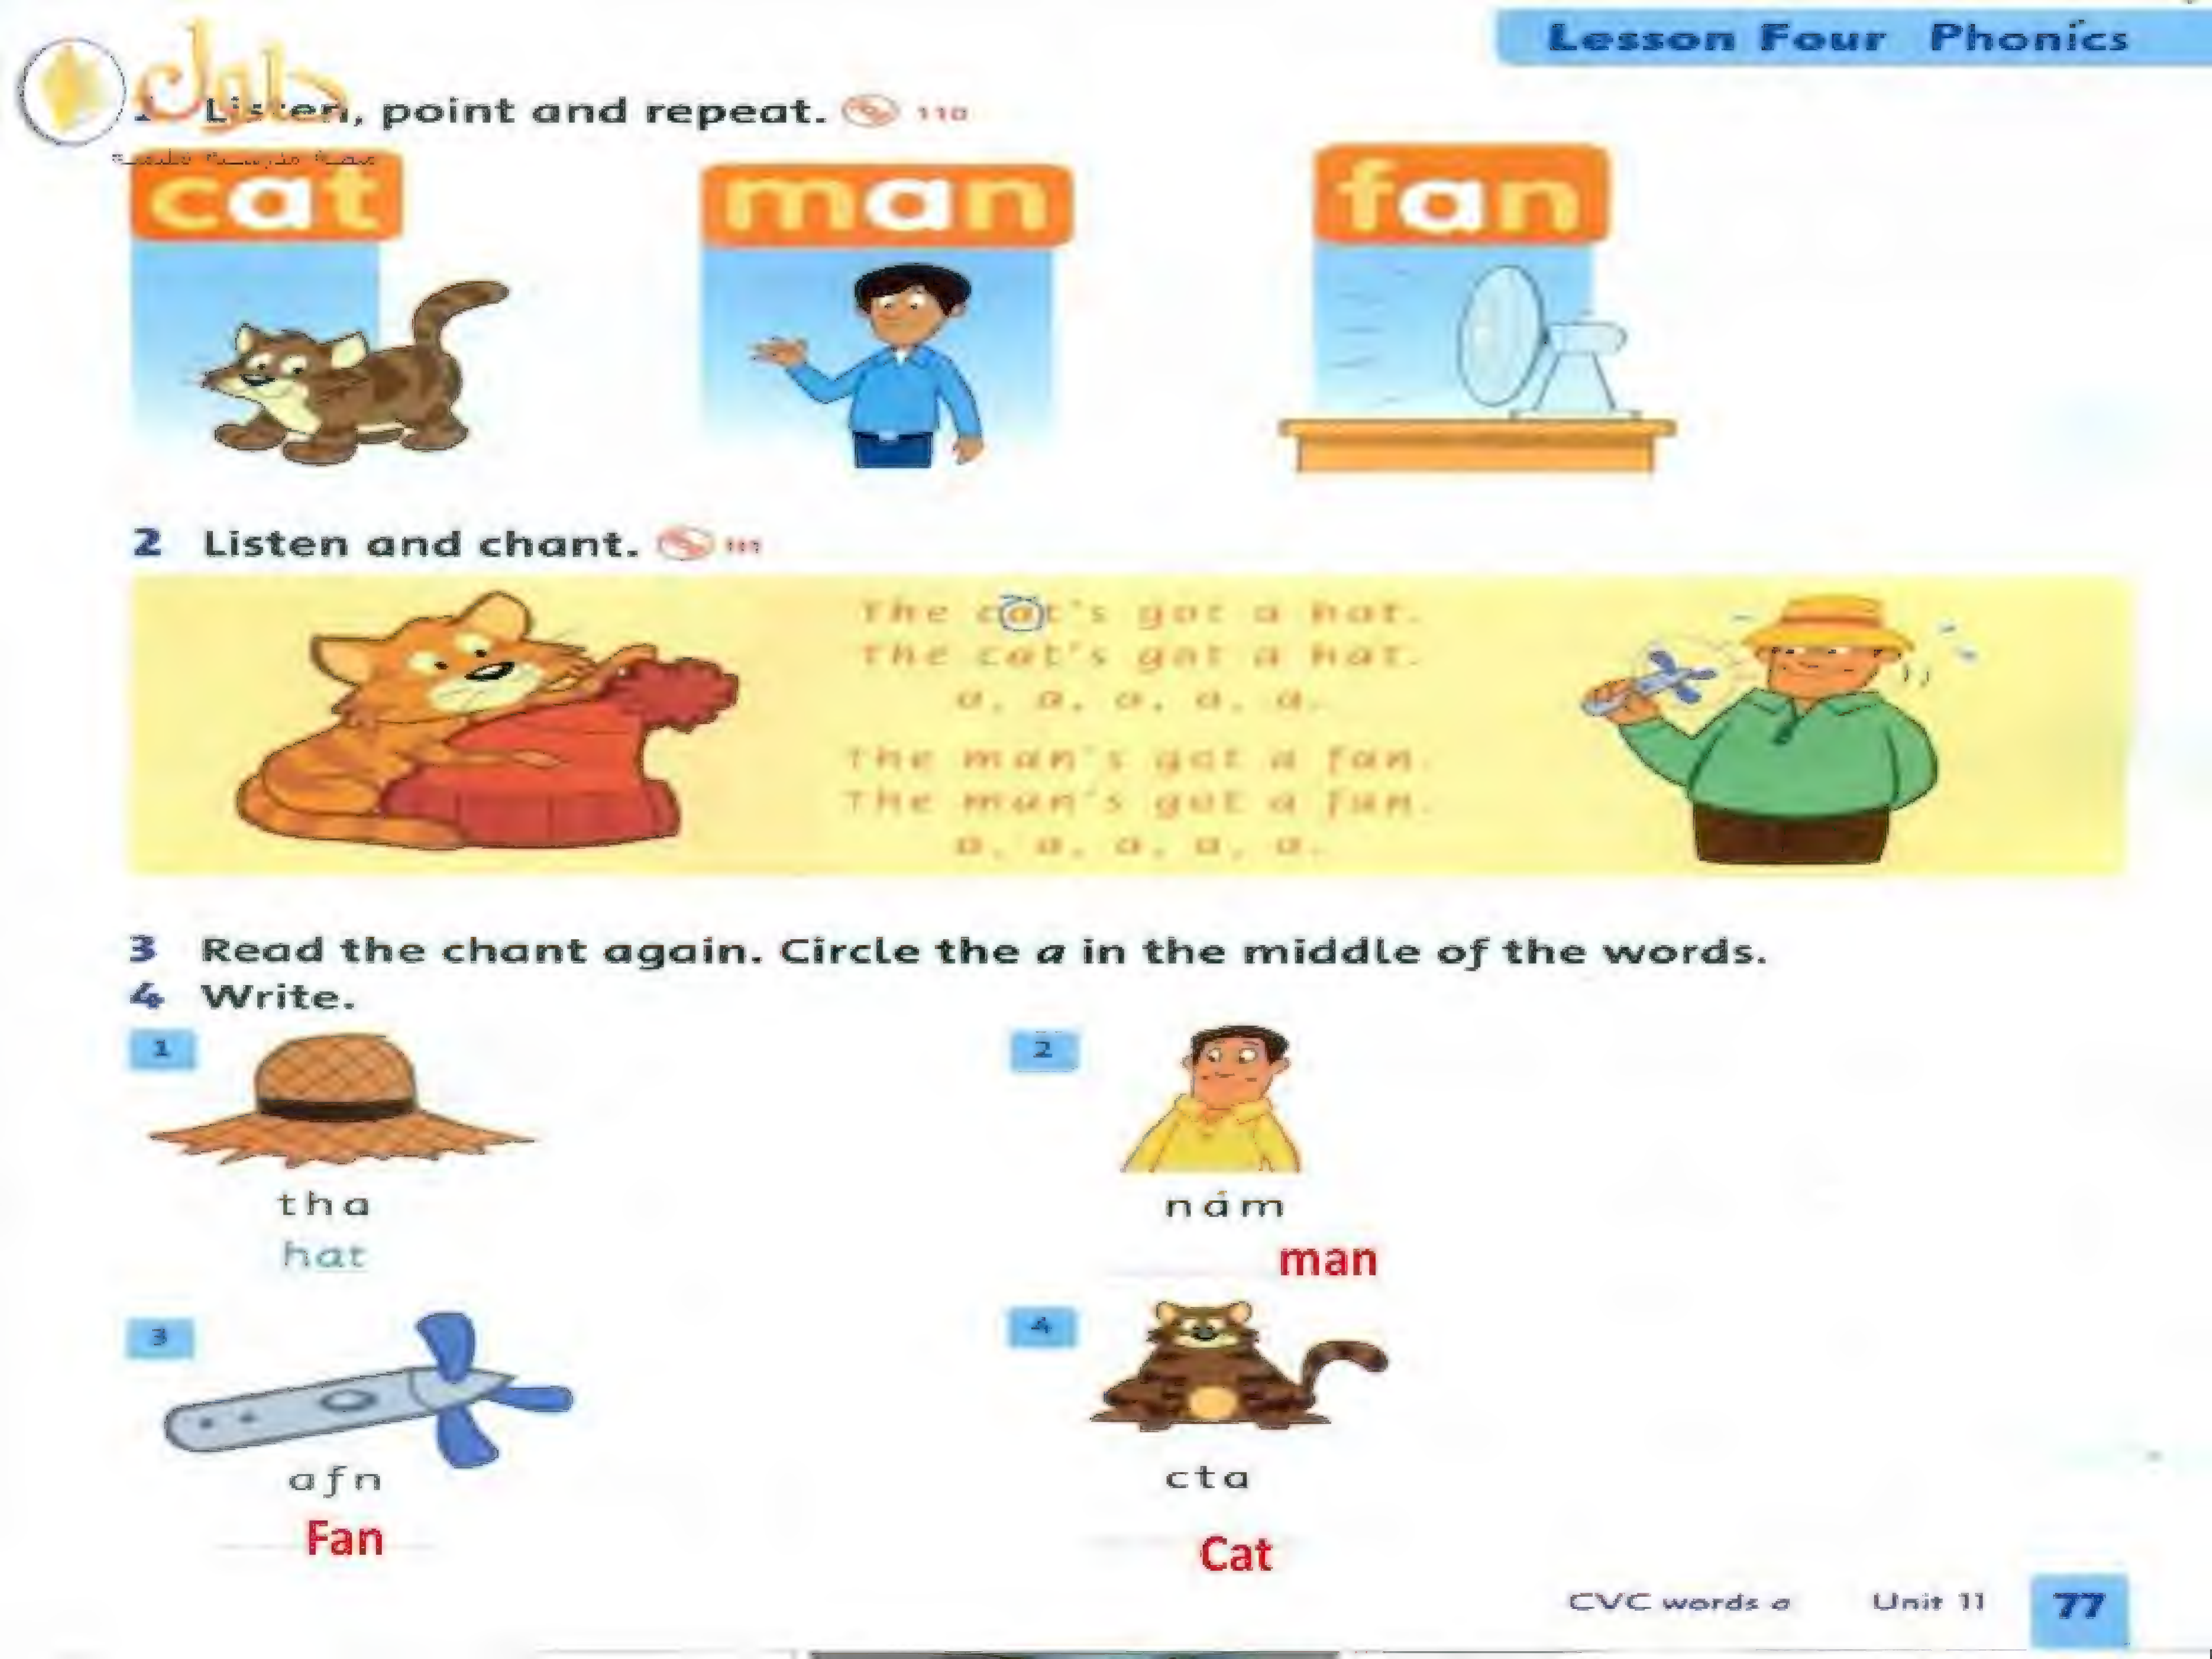 Lesson Four Phonics
حلول
1 Listen, point and repeat. 110
cat man fan
2 Listen and chant. 111
The cat's got a hat.
The cat's got a hat.
a, a, a, a, a.
The man's got a fan.
The man's got a fan.
a, a, a, a, a.
3 Read the chant again. Circle the a in the middle of the words.
4 Write.
1 2
tha nam
hat man
3 4
afn cta
Fan Cat
CVC words a Unit 11 77